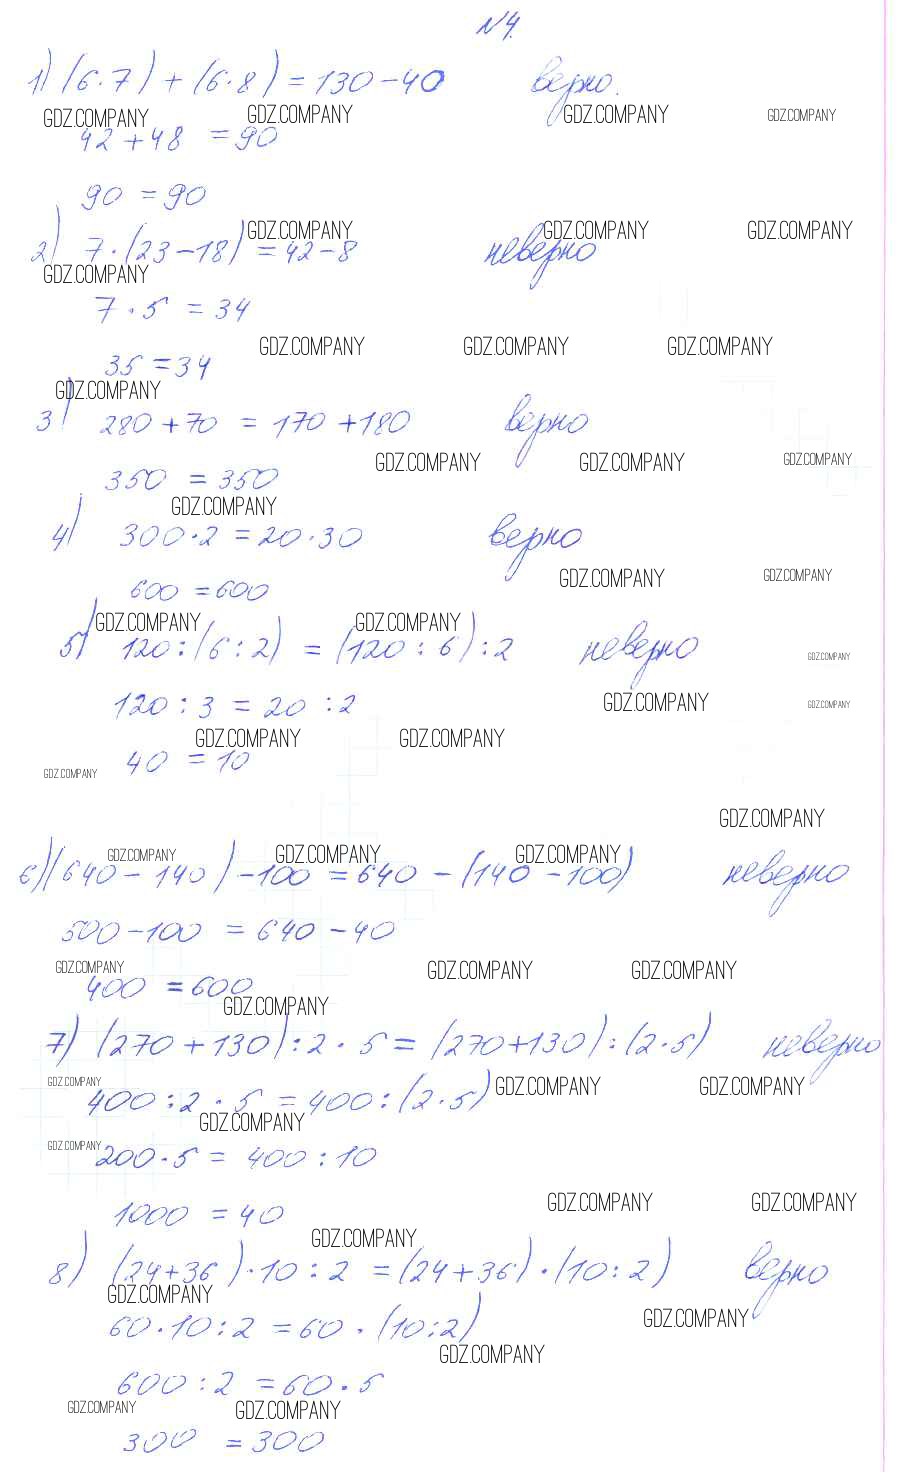 №4.
1) (6·7) + (6·8) = 130 - 40 верно.
GDZ.COMPANY GDZ.COMPANY GDZ.COMPANY GDZ.COMPANY
42 + 48 = 90
90 = 90
GDZ.COMPANY GDZ.COMPANY GDZ.COMPANY
2) 7·(23 - 18) = 42 - 8 неверно
GDZ.COMPANY
7 · 5 = 34
GDZ.COMPANY GDZ.COMPANY GDZ.COMPANY
35 = 34
GDZ.COMPANY
3) 280 + 70 = 170 + 180 верно
GDZ.COMPANY GDZ.COMPANY GDZ.COMPANY
350 = 350
GDZ.COMPANY
4) 300·2 = 20·30 верно
GDZ.COMPANY GDZ.COMPANY
600 = 600
GDZ.COMPANY GDZ.COMPANY
5) 120 : (6 : 2) = (120 : 6) : 2 неверно
GDZ.COMPANY
GDZ.COMPANY GDZ.COMPANY
120 : 3 = 20 : 2
GDZ.COMPANY GDZ.COMPANY
40 = 10
GDZ.COMPANY
GDZ.COMPANY
GDZ.COMPANY GDZ.COMPANY GDZ.COMPANY
6) (640 - 140) - 100 = 640 - (140 - 100) неверно
500 - 100 = 640 - 40
GDZ.COMPANY GDZ.COMPANY GDZ.COMPANY
400 = 600
GDZ.COMPANY
7) (270 + 130) : 2 · 5 = (270 + 130) : (2·5) неверно
GDZ.COMPANY GDZ.COMPANY GDZ.COMPANY
400 : 2 · 5 = 400 : (2·5)
GDZ.COMPANY
GDZ.COMPANY
200·5 = 400 : 10
GDZ.COMPANY GDZ.COMPANY
1000 = 40
GDZ.COMPANY
8) (24 + 36) · 10 : 2 = (24 + 36) · (10 : 2) верно
GDZ.COMPANY
GDZ.COMPANY
60·10 : 2 = 60 · (10 : 2)
GDZ.COMPANY
600 : 2 = 60·5
GDZ.COMPANY GDZ.COMPANY
300 = 300